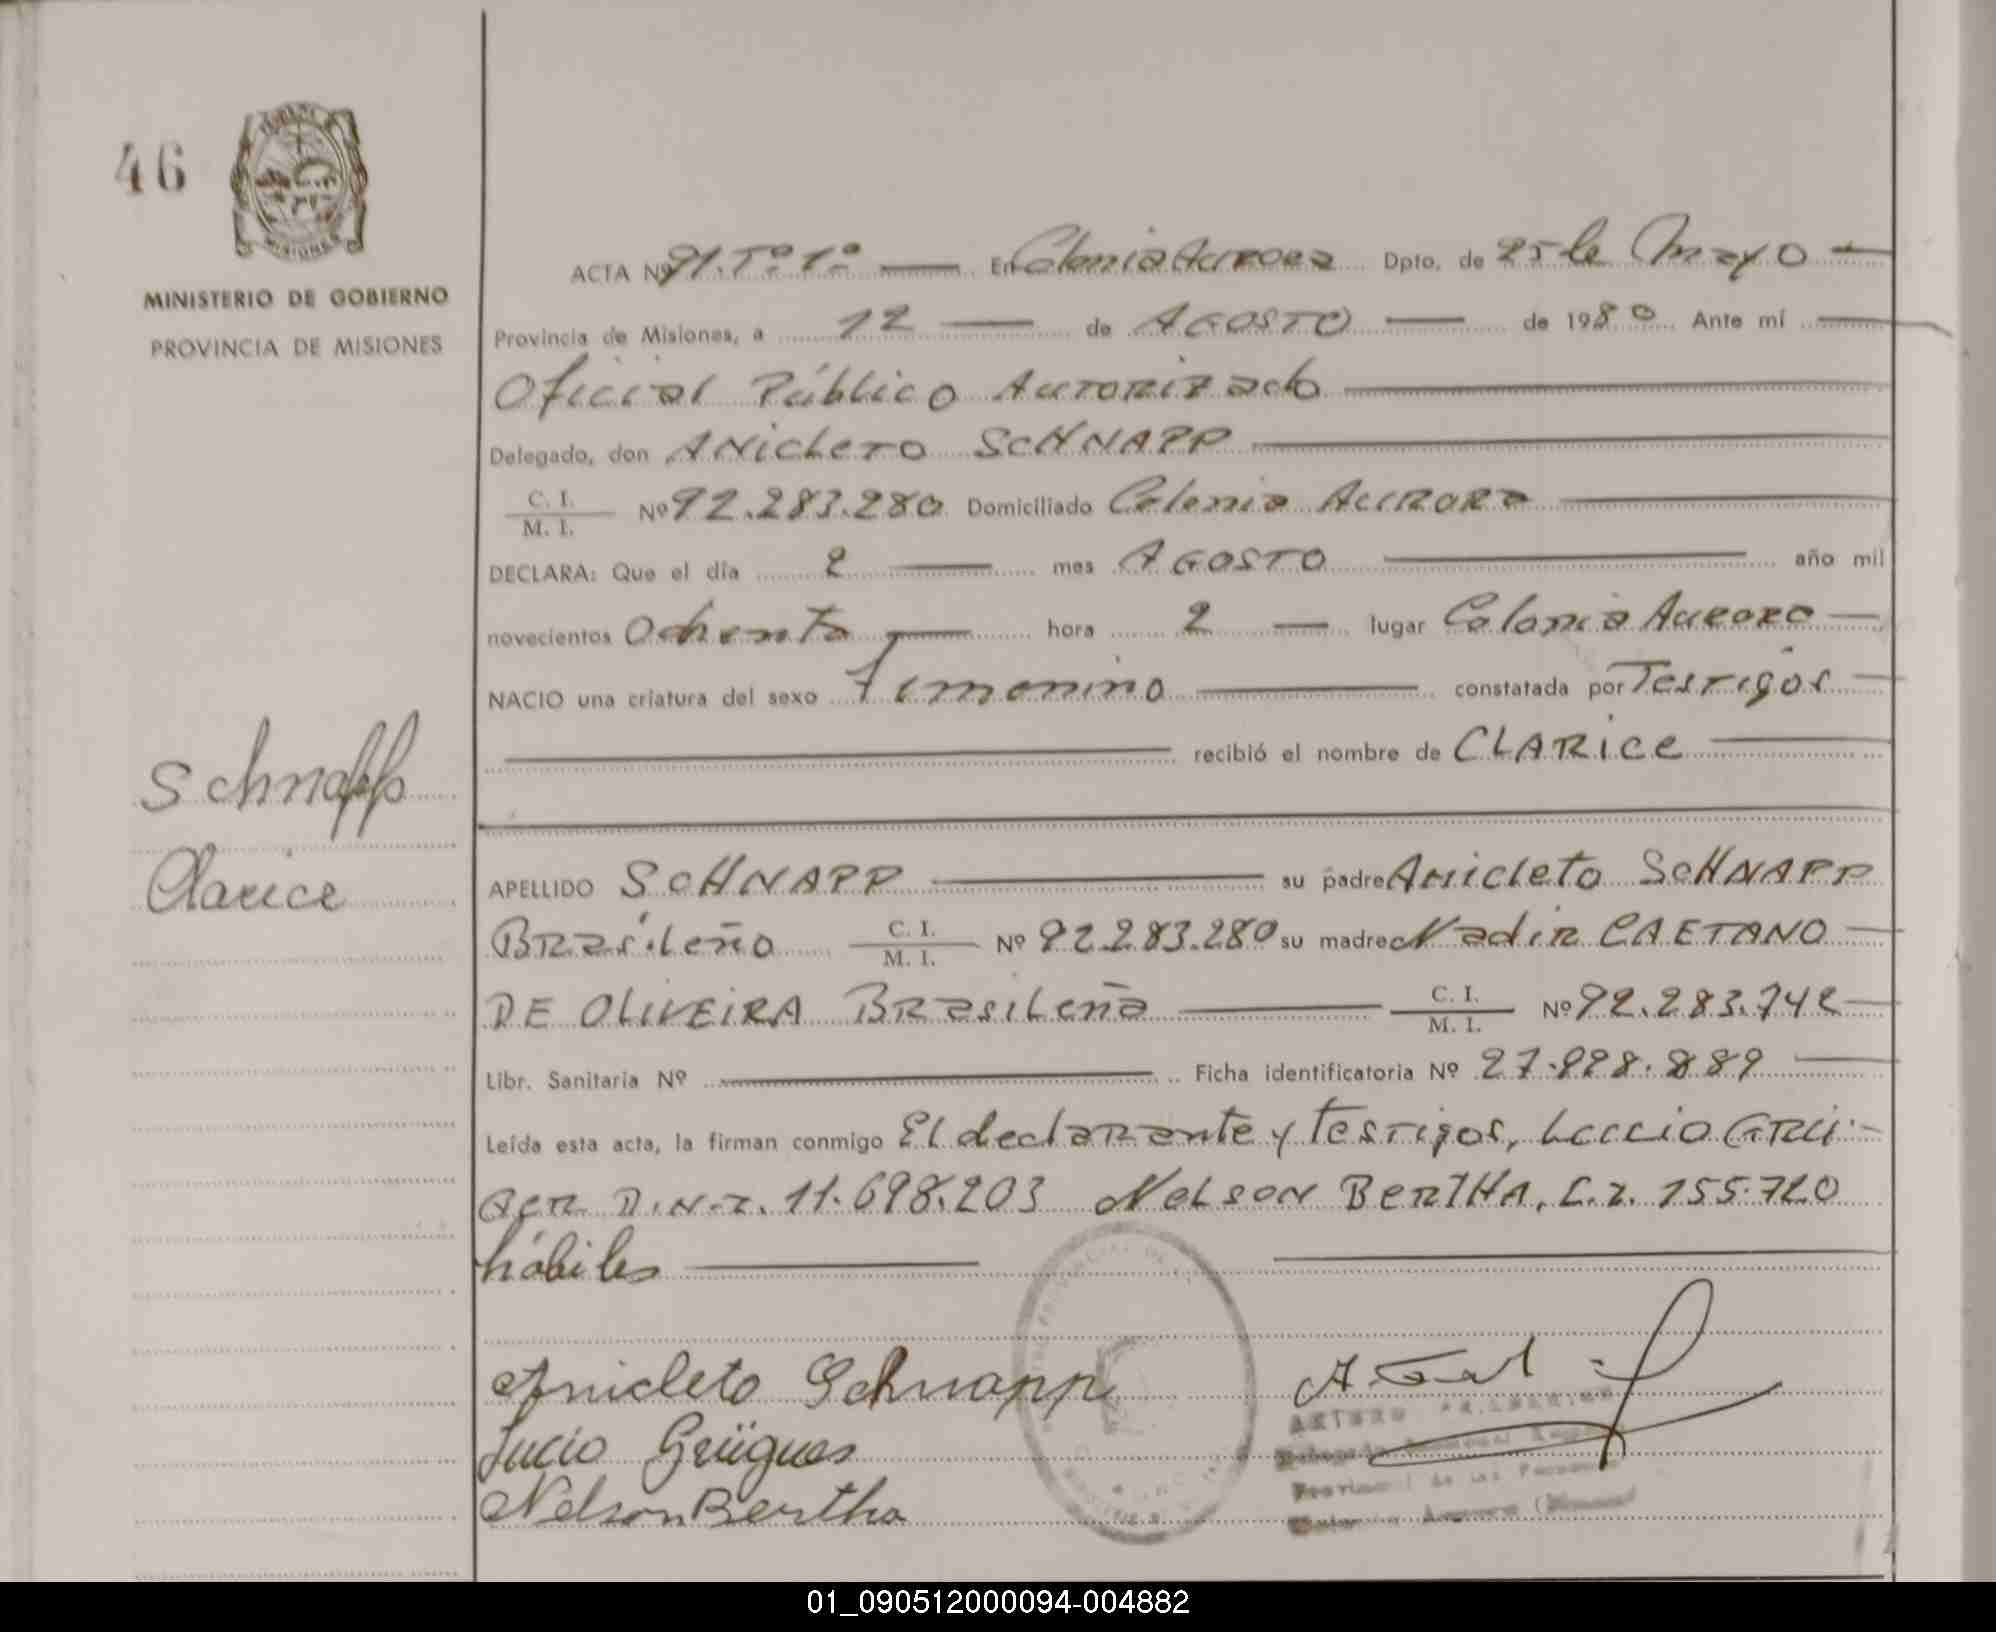 46
MINISTERIO DE GOBIERNO
PROVINCIA DE MISIONES
MISIONES
ACTA Nº 91. Tº 1º En Colonia Aurora Dpto. de 25 de Mayo
Provincia de Misiones, a 12 de AGOSTO de 1980. Ante mí
Oficial Público Autorizado
Delegado, don ANicLeTO SCHNAPP
C. I. / M. I. Nº 92.283.280 Domiciliado Colonia AURORA
DECLARA: Que el día 2 mes AGOSTO año mil
novecientos Ochenta hora 2 lugar Colonia Aurora
NACIO una criatura del sexo femenino constatada por Testigos
recibió el nombre de CLARice
Schnapp
Clarice
APELLIDO SCHNAPP su padre Anicleto SCHNAPP
BRasileño C. I. / M. I. Nº 92.283.280 su madre Nadir CAETANO
DE OLIVEIRA BRasileña C. I. / M. I. Nº 92.283.742
Libr. Sanitaria Nº Ficha identificatoria Nº 27.928.889
Leída esta acta, la firman conmigo El declarante y Testigos, Lucio GRü-
GER D.N.I. 11.698.203 NeLSON BERTHA, C.I. 155.720
hábiles
Anicleto Schnapp
Lucio Grügues
Nelson Bertha
ARTURO
Delegado
Provincial de las Personas
Colonia Aurora (Misiones)
01_090512000094-004882